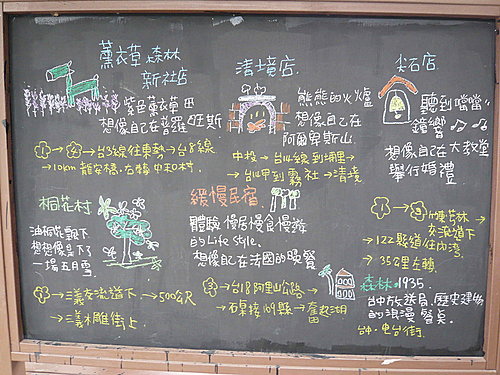 薰衣草森林
新社店
紫色薰衣草田
想像自己在普羅旺斯
台3線往東勢→台8線
→10km 龍安橋.右轉 中和村.
清境店.
熊熊的火爐
想像自己在
阿爾卑斯山.
中投→台14線到埔里→
→台14甲到霧社→清境
尖石店
聽到噹噹
鐘響
想像自己在大教堂
舉行婚禮
竹東竹林
交流道下
→122縣道往內灣
→35公里左轉.
桐花村
油桐花飄下
想想像是下了
一場五月雪
三義交流道下.→500公尺
→三義木雕街上.
緩慢民宿
體驗慢居慢食慢遊
的Life style.
想像自己在法國的晚餐
台18阿里山公路→
石桌接169縣→奮起湖
森林1935.
台中放送局.歷史建物
的浪漫餐桌
台中.電台街.